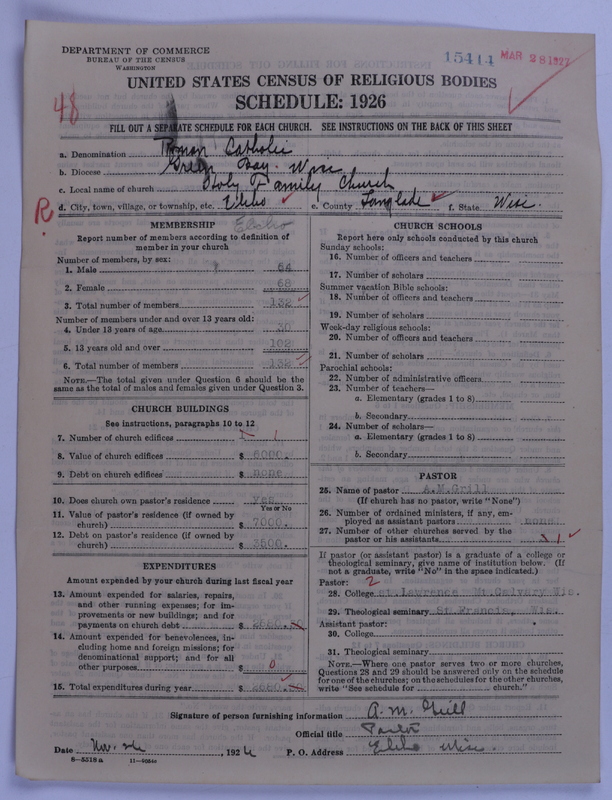 DEPARTMENT OF COMMERCE
BUREAU OF THE CENSUS
WASHINGTON
15414 MAR 28 1927
UNITED STATES CENSUS OF RELIGIOUS BODIES
SCHEDULE: 1926
48
FILL OUT A SEPARATE SCHEDULE FOR EACH CHURCH. SEE INSTRUCTIONS ON THE BACK OF THIS SHEET
a. Denomination Roman Catholic
b. Diocese Green Bay. Wisc
c. Local name of church Holy Family Church
R. d. City, town, village, or township, etc. Elcho e. County Langlade f. State Wisc.
Elcho
MEMBERSHIP
Report number of members according to definition of member in your church
Number of members, by sex:
1. Male 64
2. Female 68
3. Total number of members 132
Number of members under and over 13 years old:
4. Under 13 years of age 30
5. 13 years old and over 102
6. Total number of members 132
NOTE.—The total given under Question 6 should be the same as the total of males and females given under Question 3.
CHURCH BUILDINGS
See instructions, paragraphs 10 to 12
7. Number of church edifices 1 1
8. Value of church edifices $ 6000.
9. Debt on church edifices $ none
10. Does church own pastor's residence yes
Yes or No
11. Value of pastor's residence (if owned by church) $ 7000.
12. Debt on pastor's residence (if owned by church) $ 3500.
EXPENDITURES
Amount expended by your church during last fiscal year
13. Amount expended for salaries, repairs, and other running expenses; for improvements or new buildings; and for payments on church debt $
14. Amount expended for benevolences, including home and foreign missions; for denominational support; and for all other purposes $ 0
15. Total expenditures during year $
CHURCH SCHOOLS
Report here only schools conducted by this church
Sunday schools:
16. Number of officers and teachers
17. Number of scholars
Summer vacation Bible schools:
18. Number of officers and teachers
19. Number of scholars
Week-day religious schools:
20. Number of officers and teachers
21. Number of scholars
Parochial schools:
22. Number of administrative officers
23. Number of teachers—
a. Elementary (grades 1 to 8)
b. Secondary
24. Number of scholars—
a. Elementary (grades 1 to 8)
b. Secondary
PASTOR
25. Name of pastor A.M.Grill
(If church has no pastor, write "None")
26. Number of ordained ministers, if any, employed as assistant pastors none
27. Number of other churches served by the pastor or his assistants 1
If pastor (or assistant pastor) is a graduate of a college or theological seminary, give name of institution below. (If not a graduate, write "No" in the space indicated.)
Pastor: 2
28. College St. Lawrence Mt. Calvary Wis.
29. Theological seminary St. Francis, Wis.
Assistant pastor:
30. College
31. Theological seminary
NOTE.—Where one pastor serves two or more churches, Questions 28 and 29 should be answered only on the schedule for one of the churches; on the schedules for the other churches, write "See schedule for church."
Signature of person furnishing information A. M. Grill
Official title Pastor
Date Nov. 26, 1926 P. O. Address Elcho Wisc.
8—5518a 11—9054